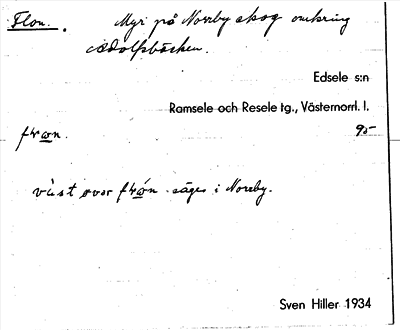 Flon. Myr på Norrby skog omkring
Adolfsbäcken.
Edsele s:n
Ramsele och Resele tg., Västernorrl. l.
95
väst över säges i Norrby.
Sven Hiller 1934